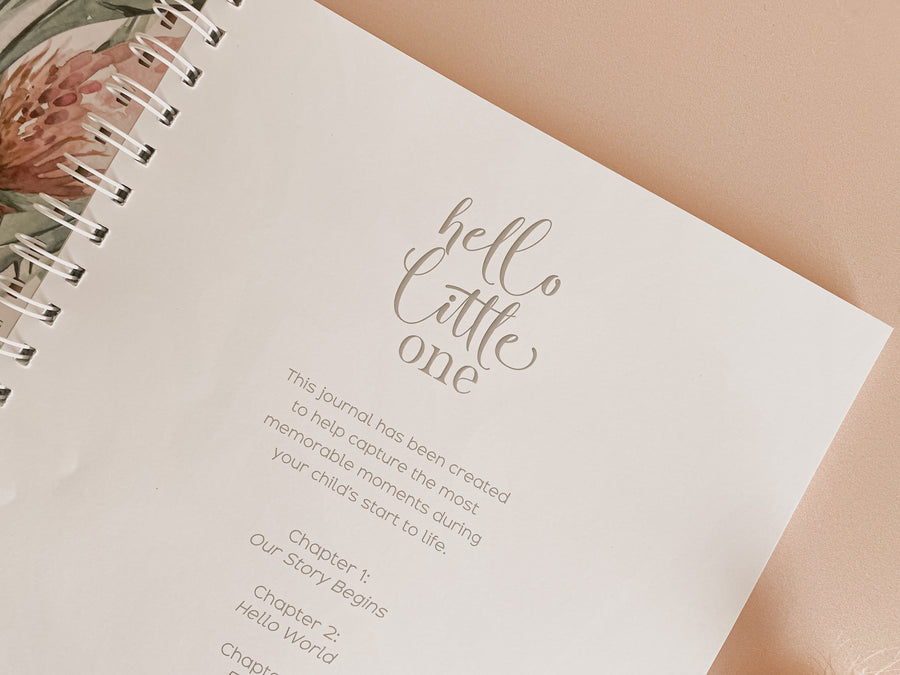 hello
little
one
This journal has been created
to help capture the most
memorable moments during
your child's start to life.
Chapter 1:
Our Story Begins
Chapter 2:
Hello World